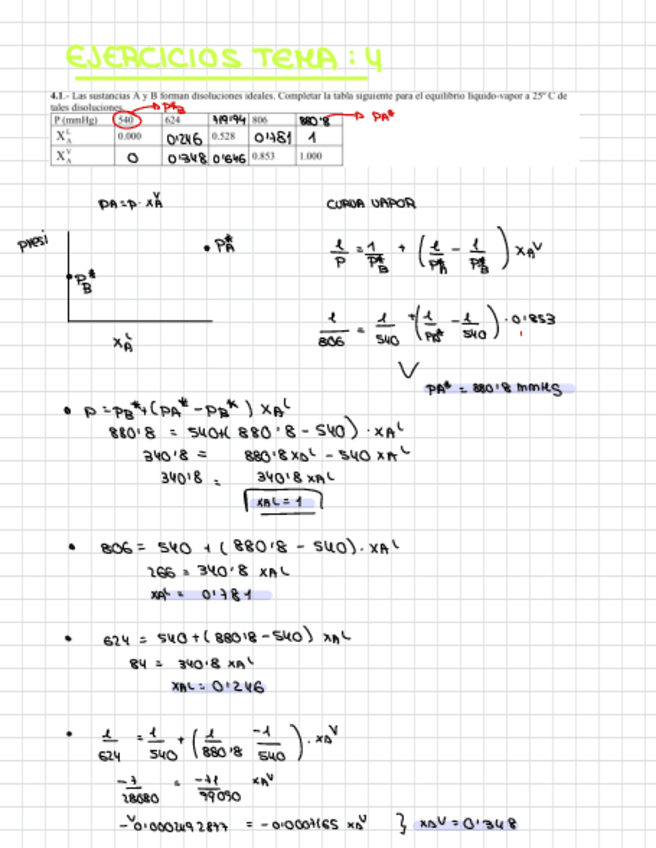 EJERCICIOS TEMA : 4
4.1.- Las sustancias A y B forman disoluciones ideales. Completar la tabla siguiente para el equilibrio líquido-vapor a 25º C de
tales disoluciones. → P*B
P (mmHg) 540 624 719'94 806 880'8 → PA*
X_A^L 0.000 0'246 0.528 0'781 1
X_A^V 0 0'348 0'646 0.853 1.000
PA = P · XA^V
CURVA VAPOR
presi
• PA*
1/P = 1/PB* + (1/PA* - 1/PB*) XA^V
• PB*
XA^L
1/806 = 1/540 + (1/PA* - 1/540) · 0'853
PA* = 880'8 mmHg
• P = PB* + (PA* - PB*) XA^L
880'8 = 540 + (880'8 - 540) · XA^L
340'8 = 880'8 XA^L - 540 XA^L
340'8 = 340'8 XA^L
XA^L = 1
• 806 = 540 + (880'8 - 540) · XA^L
266 = 340'8 XA^L
XA^L = 0'781
• 624 = 540 + (880'8 - 540) XA^L
84 = 340'8 XA^L
XA^L = 0'246
• 1/624 = 1/540 + (1/880'8 - 1/540) · XA^V
-7/28080 = -71/99090 XA^V
-0'0002492877 = -0'0007165 XA^V } XA^V = 0'348